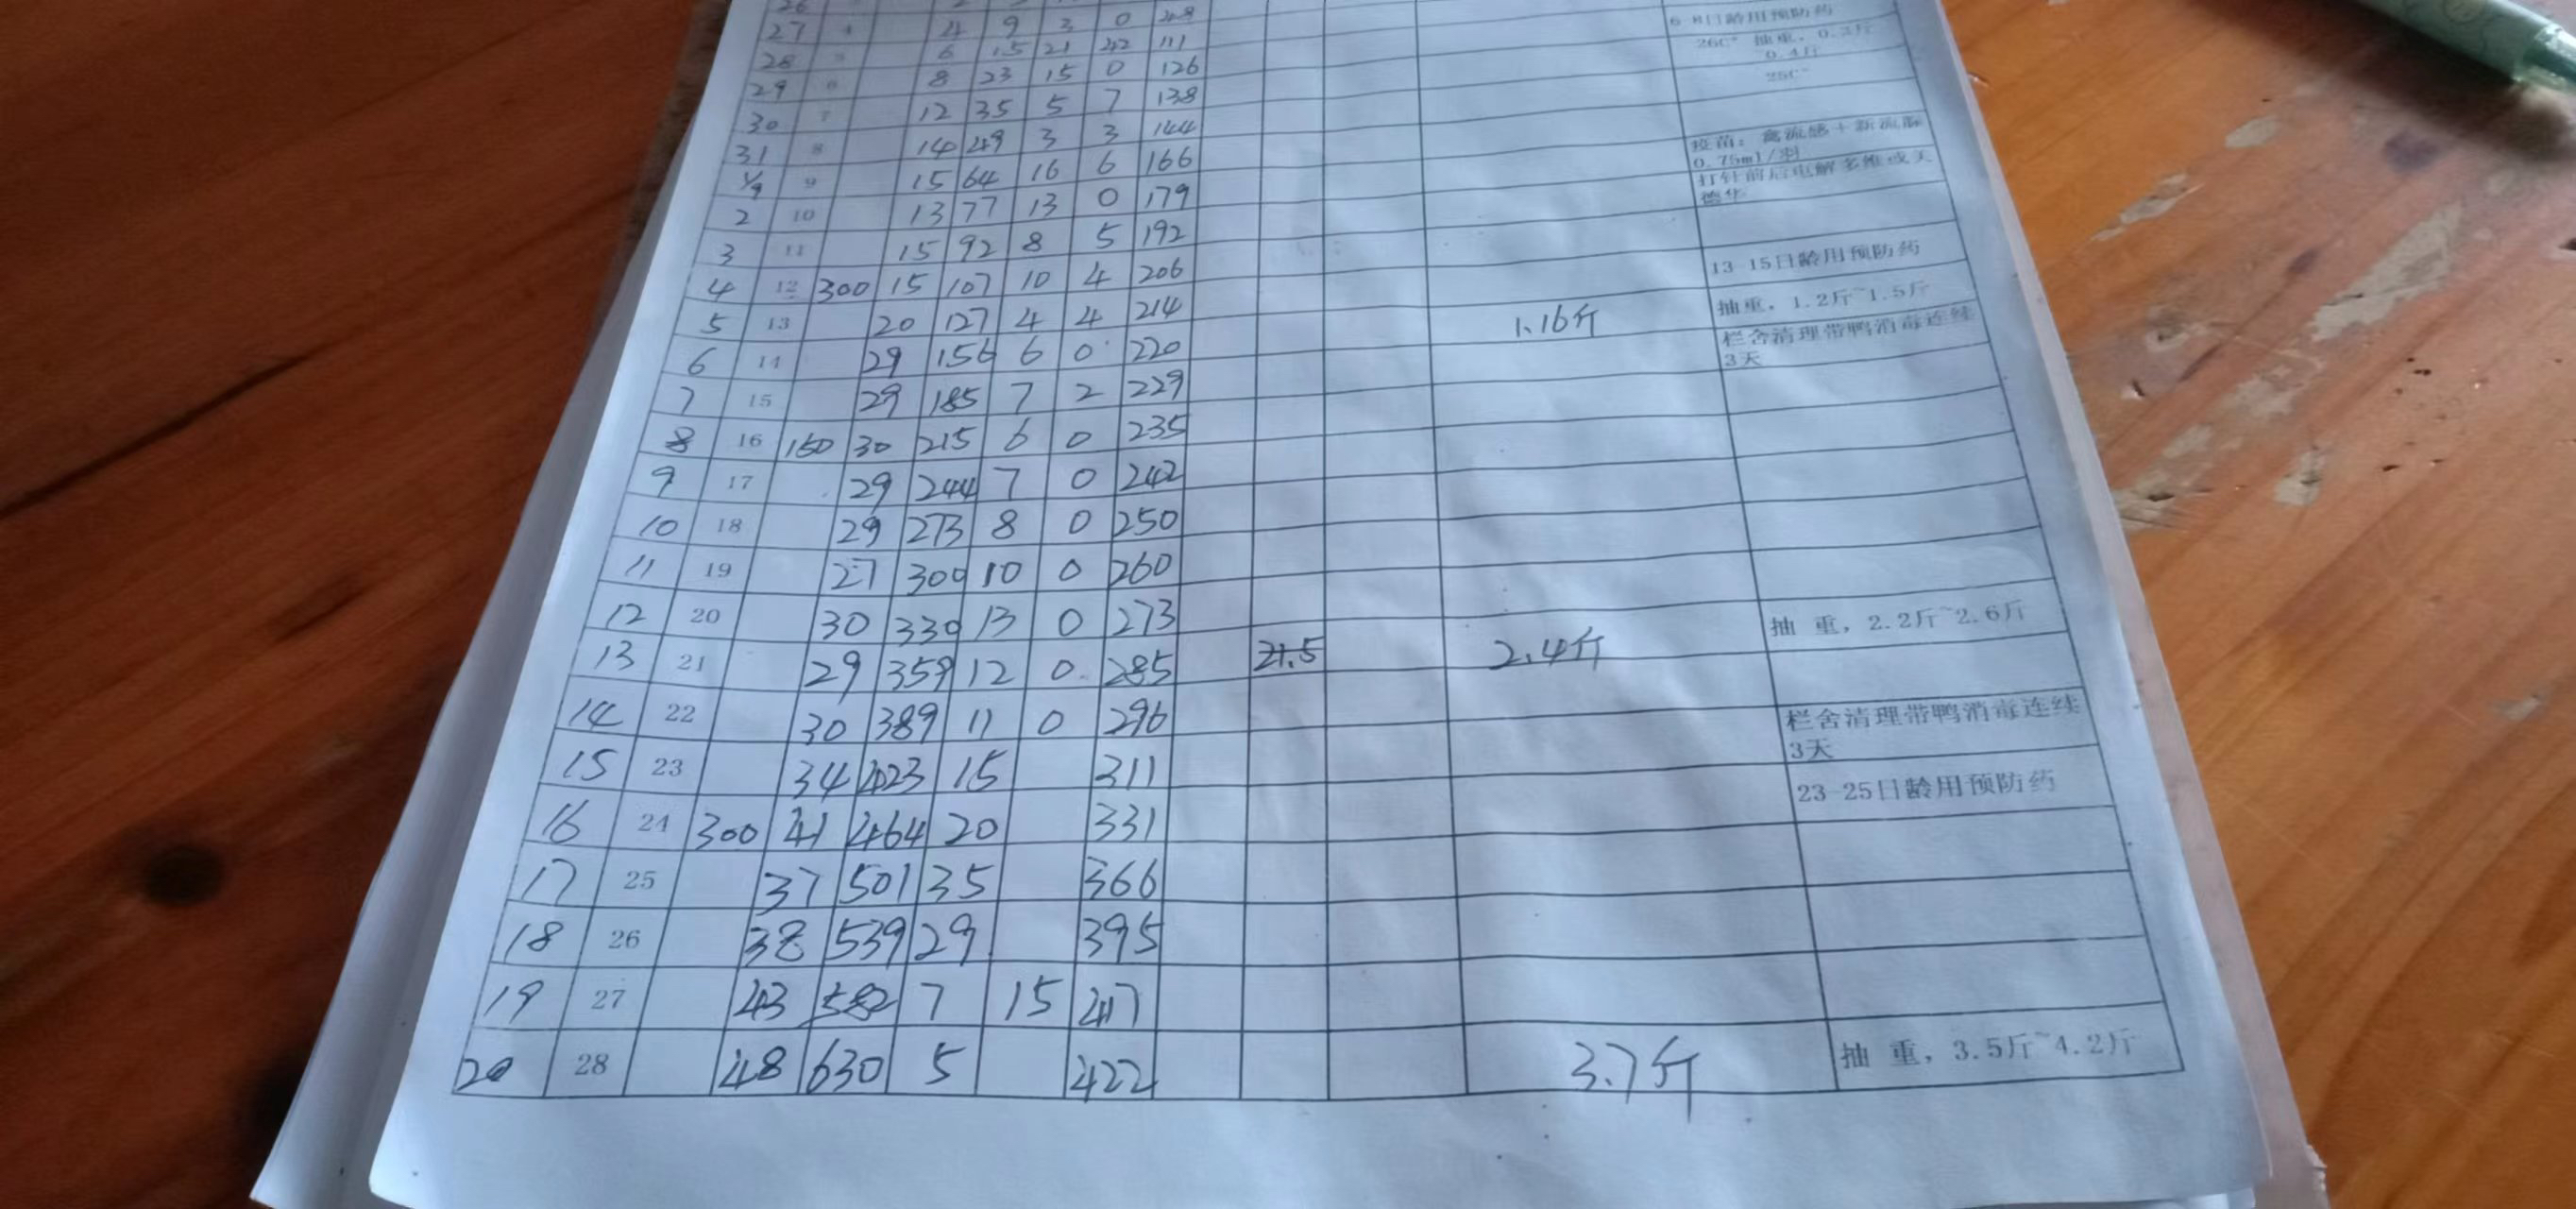 27 4 4 9 3 0
28 6 15 21 42 111
6-8日龄用预防药
29 6 8 23 15 0 126
26C° 抽重，0.3斤
0.4斤
30 7 12 35 5 7 138
25C°
31 8 14 49 3 3 144
1/9 9 15 64 16 6 166
疫苗：禽流感+新流
0.75ml/羽
2 10 13 77 13 0 179
打针前后电解多维或天
德华
3 11 15 92 8 5 192
4 12 300 15 107 10 4 206
13-15日龄用预防药
5 13 20 127 4 4 214 1.16斤 抽重，1.2斤~1.5斤
6 14 29 156 6 0 220
栏舍清理带鸭消毒连续
3天
7 15 29 185 7 2 229
8 16 160 30 215 6 0 235
9 17 29 244 7 0 242
10 18 29 273 8 0 250
11 19 27 300 10 0 260
12 20 30 330 13 0 273
抽 重，2.2斤~2.6斤
13 21 29 359 12 0 285 21.5 2.4斤
14 22 30 389 11 0 296
栏舍清理带鸭消毒连续
3天
15 23 34 423 15 311
23-25日龄用预防药
16 24 300 41 464 20 331
17 25 37 501 35 366
18 26 38 539 29 395
19 27 43 582 7 15 417
20 28 48 630 5 422 3.7斤 抽 重，3.5斤~4.2斤